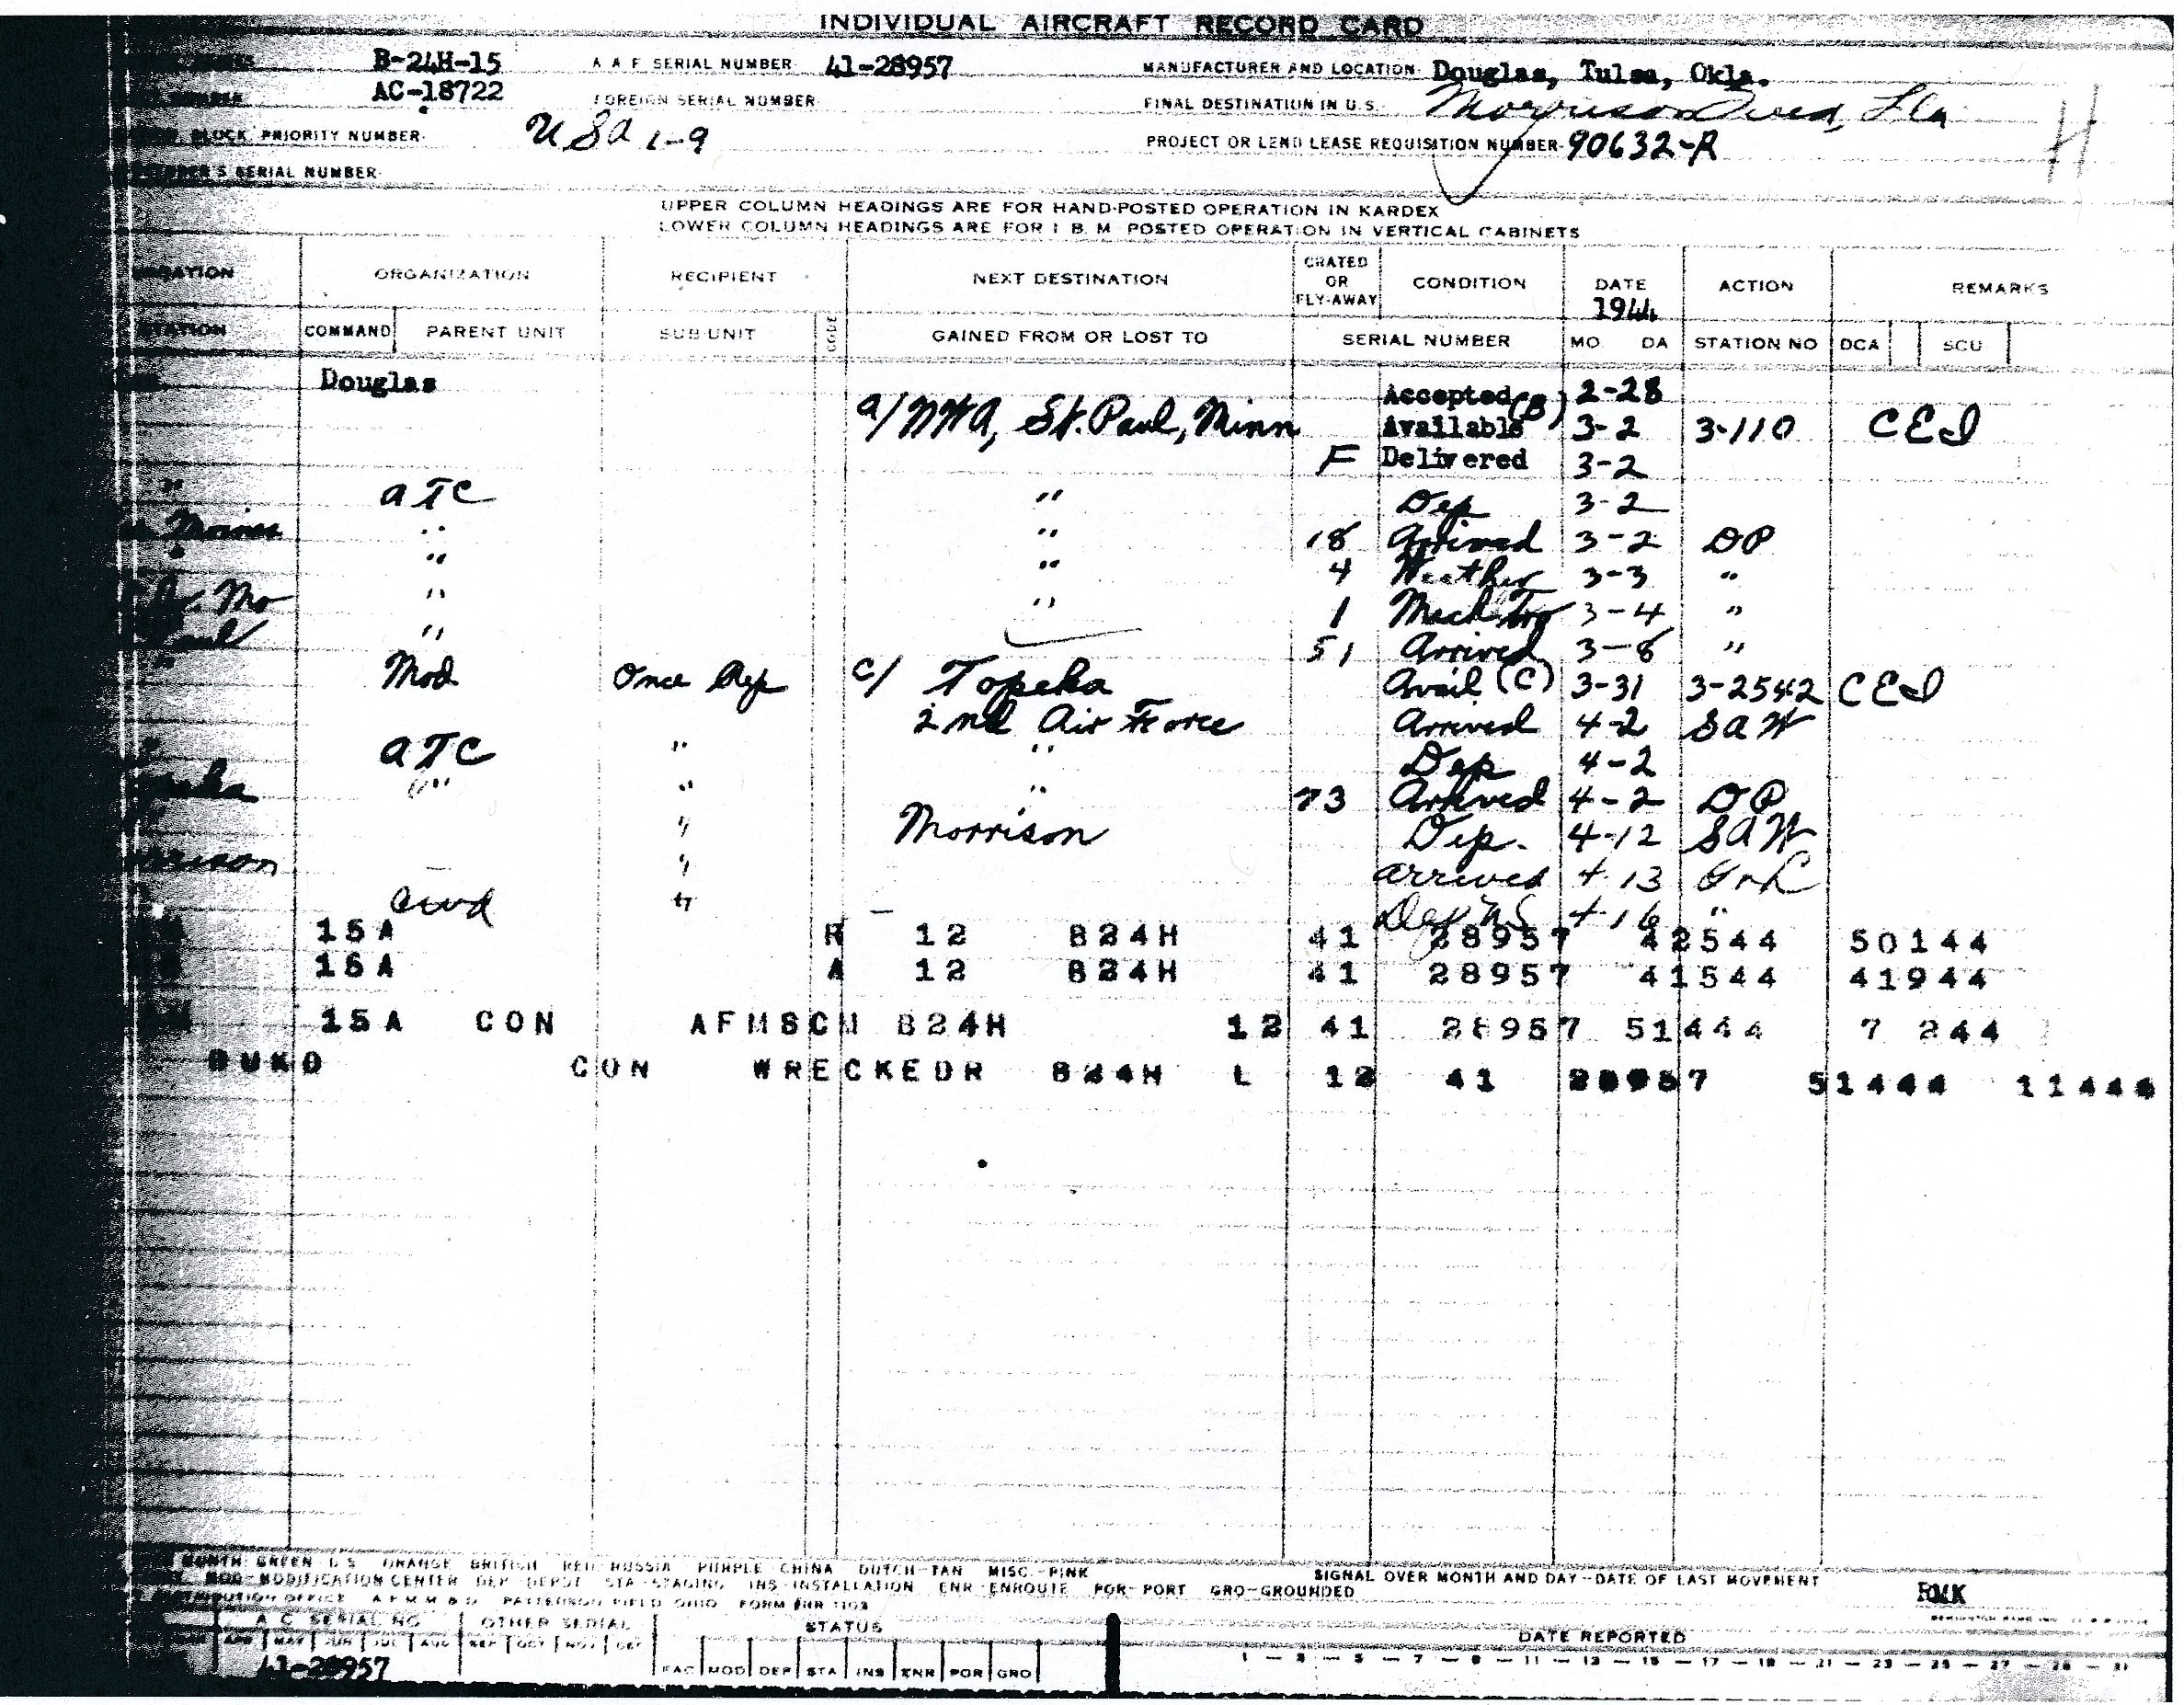 INDIVIDUAL AIRCRAFT RECORD CARD
B-24H-15 A A F SERIAL NUMBER 41-28957 MANUFACTURER AND LOCATION Douglas, Tulsa, Okla.
AC-18722 FOREIGN SERIAL NUMBER FINAL DESTINATION IN U.S. Fla
BLOCK, PRIORITY NUMBER USA 1-9 PROJECT OR LEND LEASE REQUISITION NUMBER 90632-R
SERIAL NUMBER H
UPPER COLUMN HEADINGS ARE FOR HAND-POSTED OPERATION IN KARDEX
LOWER COLUMN HEADINGS ARE FOR I. B. M. POSTED OPERATION IN VERTICAL CABINETS
ORGANIZATION RECIPIENT NEXT DESTINATION CRATED OR FLY-AWAY CONDITION DATE 1944 ACTION REMARKS
STATION COMMAND PARENT UNIT SUB-UNIT CODE GAINED FROM OR LOST TO SERIAL NUMBER MO. DA. STATION NO. DCA SCU
Douglas Accepted 2-28
a/NWA, St. Paul, Minn (B) Available 3-2 3-110 CEI
F Delivered 3-2
" ATC " Dep 3-2
Moines " " 18 Arrived 3-2 DP
" " " 4 Weather 3-3 "
Mo " " 1 Mech 3-4 "
" 51 Arrived 3-8 "
" Mod Once Rep c/ Topeka Avail (C) 3-31 3-2542 CEI
2nd Air Force Arrived 4-2 SAW
" ATC " " Dep 4-2
" " " 73 Arrived 4-2 DP
" Morrison Dep. 4-12 SAW
" arrived 4-13
" Dep 4-16 "
15A R 12 B24H 41 28957 42544 50144
15A A 12 B24H 41 28957 41544 41944
15A CON AFMSCM B24H 12 41 28957 51444 7 244
CON WRECKEDR B24H L 12 41 28957 51444
MONTH: GREEN-U.S. ORANGE-BRITISH RED-RUSSIA PURPLE-CHINA DUTCH-TAN MISC.-PINK
MOD-MODIFICATION CENTER DEP-DEPOT STA-STAGING INS-INSTALLATION ENR-ENROUTE POR-PORT GRO-GROUNDED SIGNAL OVER MONTH AND DAY-DATE OF LAST MOVEMENT
DISTRIBUTION OFFICE PATTERSON FIELD OHIO FORM
A.C. SERIAL NO. OTHER SERIAL STATUS
APR MAY JUN JUL AUG SEP OCT NOV DEC DATE REPORTED
41-28957 FAC MOD DEP STA INS ENR POR GRO 1 — 3 — 5 — 7 — 9 — 11 — 13 — 15 — 17 — 19 — 21 — 23 — 25 — 27 — 29 — 31